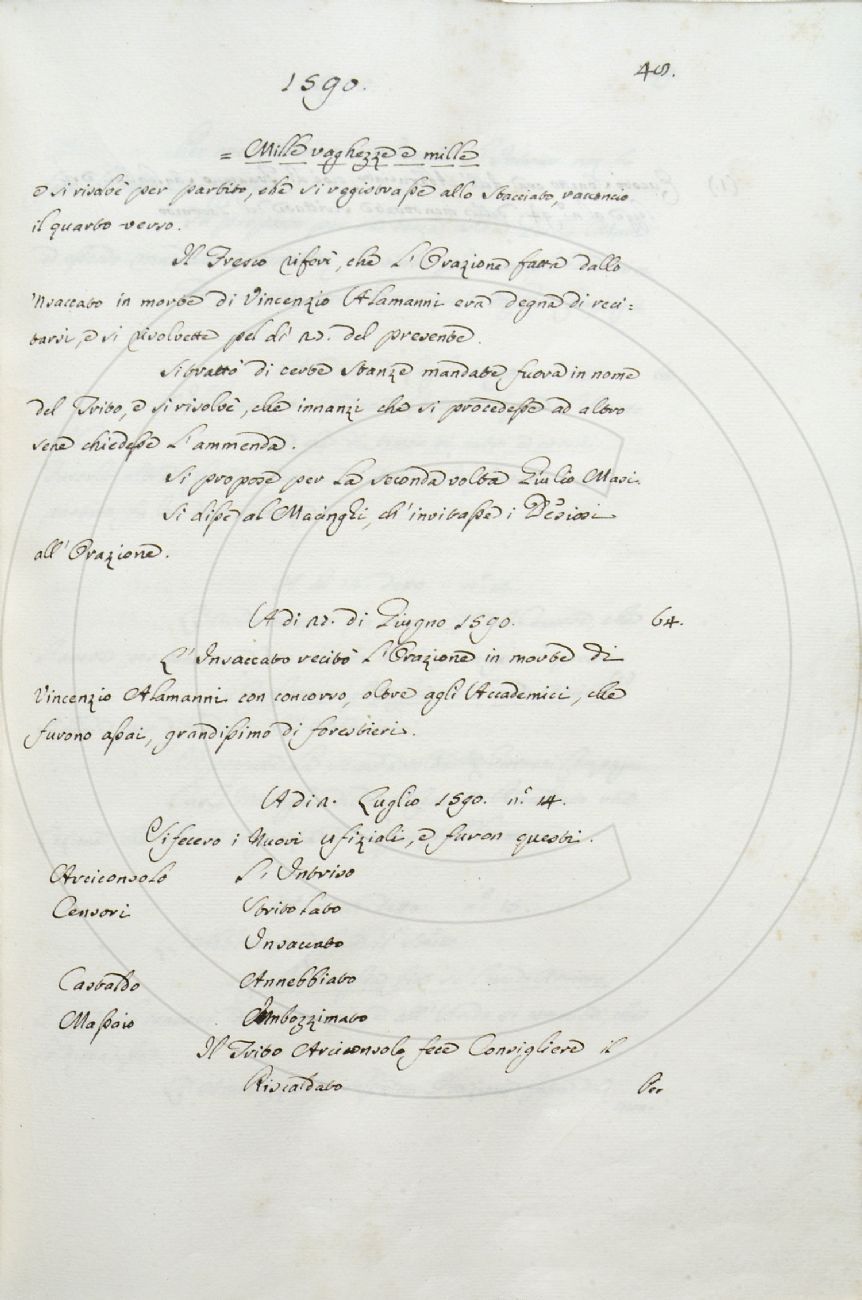 48.
1590.
= Mille vaghezze e mille
e si risolvè per partito, che si registrasse allo Stacciato, racconcio
il quarto verso.
Il Fresco riferì, che l'Orazione fatta dallo
'Nsaccato in morte di Vincenzio Alamanni era degna di reci=
tarsi, e si risolvette pel dì 21. del presente.
Si trattò di certe stanze mandate fuora in nome
del Trito, e si risolvè, che innanzi che si procedesse ad altro
sene chiedesse l'ammenda.
Si propose per la seconda volta Giulio Masi.
Si disse al Macinghi, ch'invitasse i
all'Orazione.
Adi 21. di Giugno 1590. 64.
L'Insaccato recitò l'Orazione in morte di
Vincenzio Alamanni con concorso, oltre agli Accademici, che
furono assai, grandissimo di forestieri.
Adi 2. Luglio 1590. n.° 14.
Si fecero i Nuovi ufiziali, e furon questi.
Arciconsolo L'Intriso
Censori Stritolato
Insaccato
Castaldo Annebbiato
Massaio Imbozzimato
Il Trito Arciconsolo fece Consigliere il
Riscaldato
Per